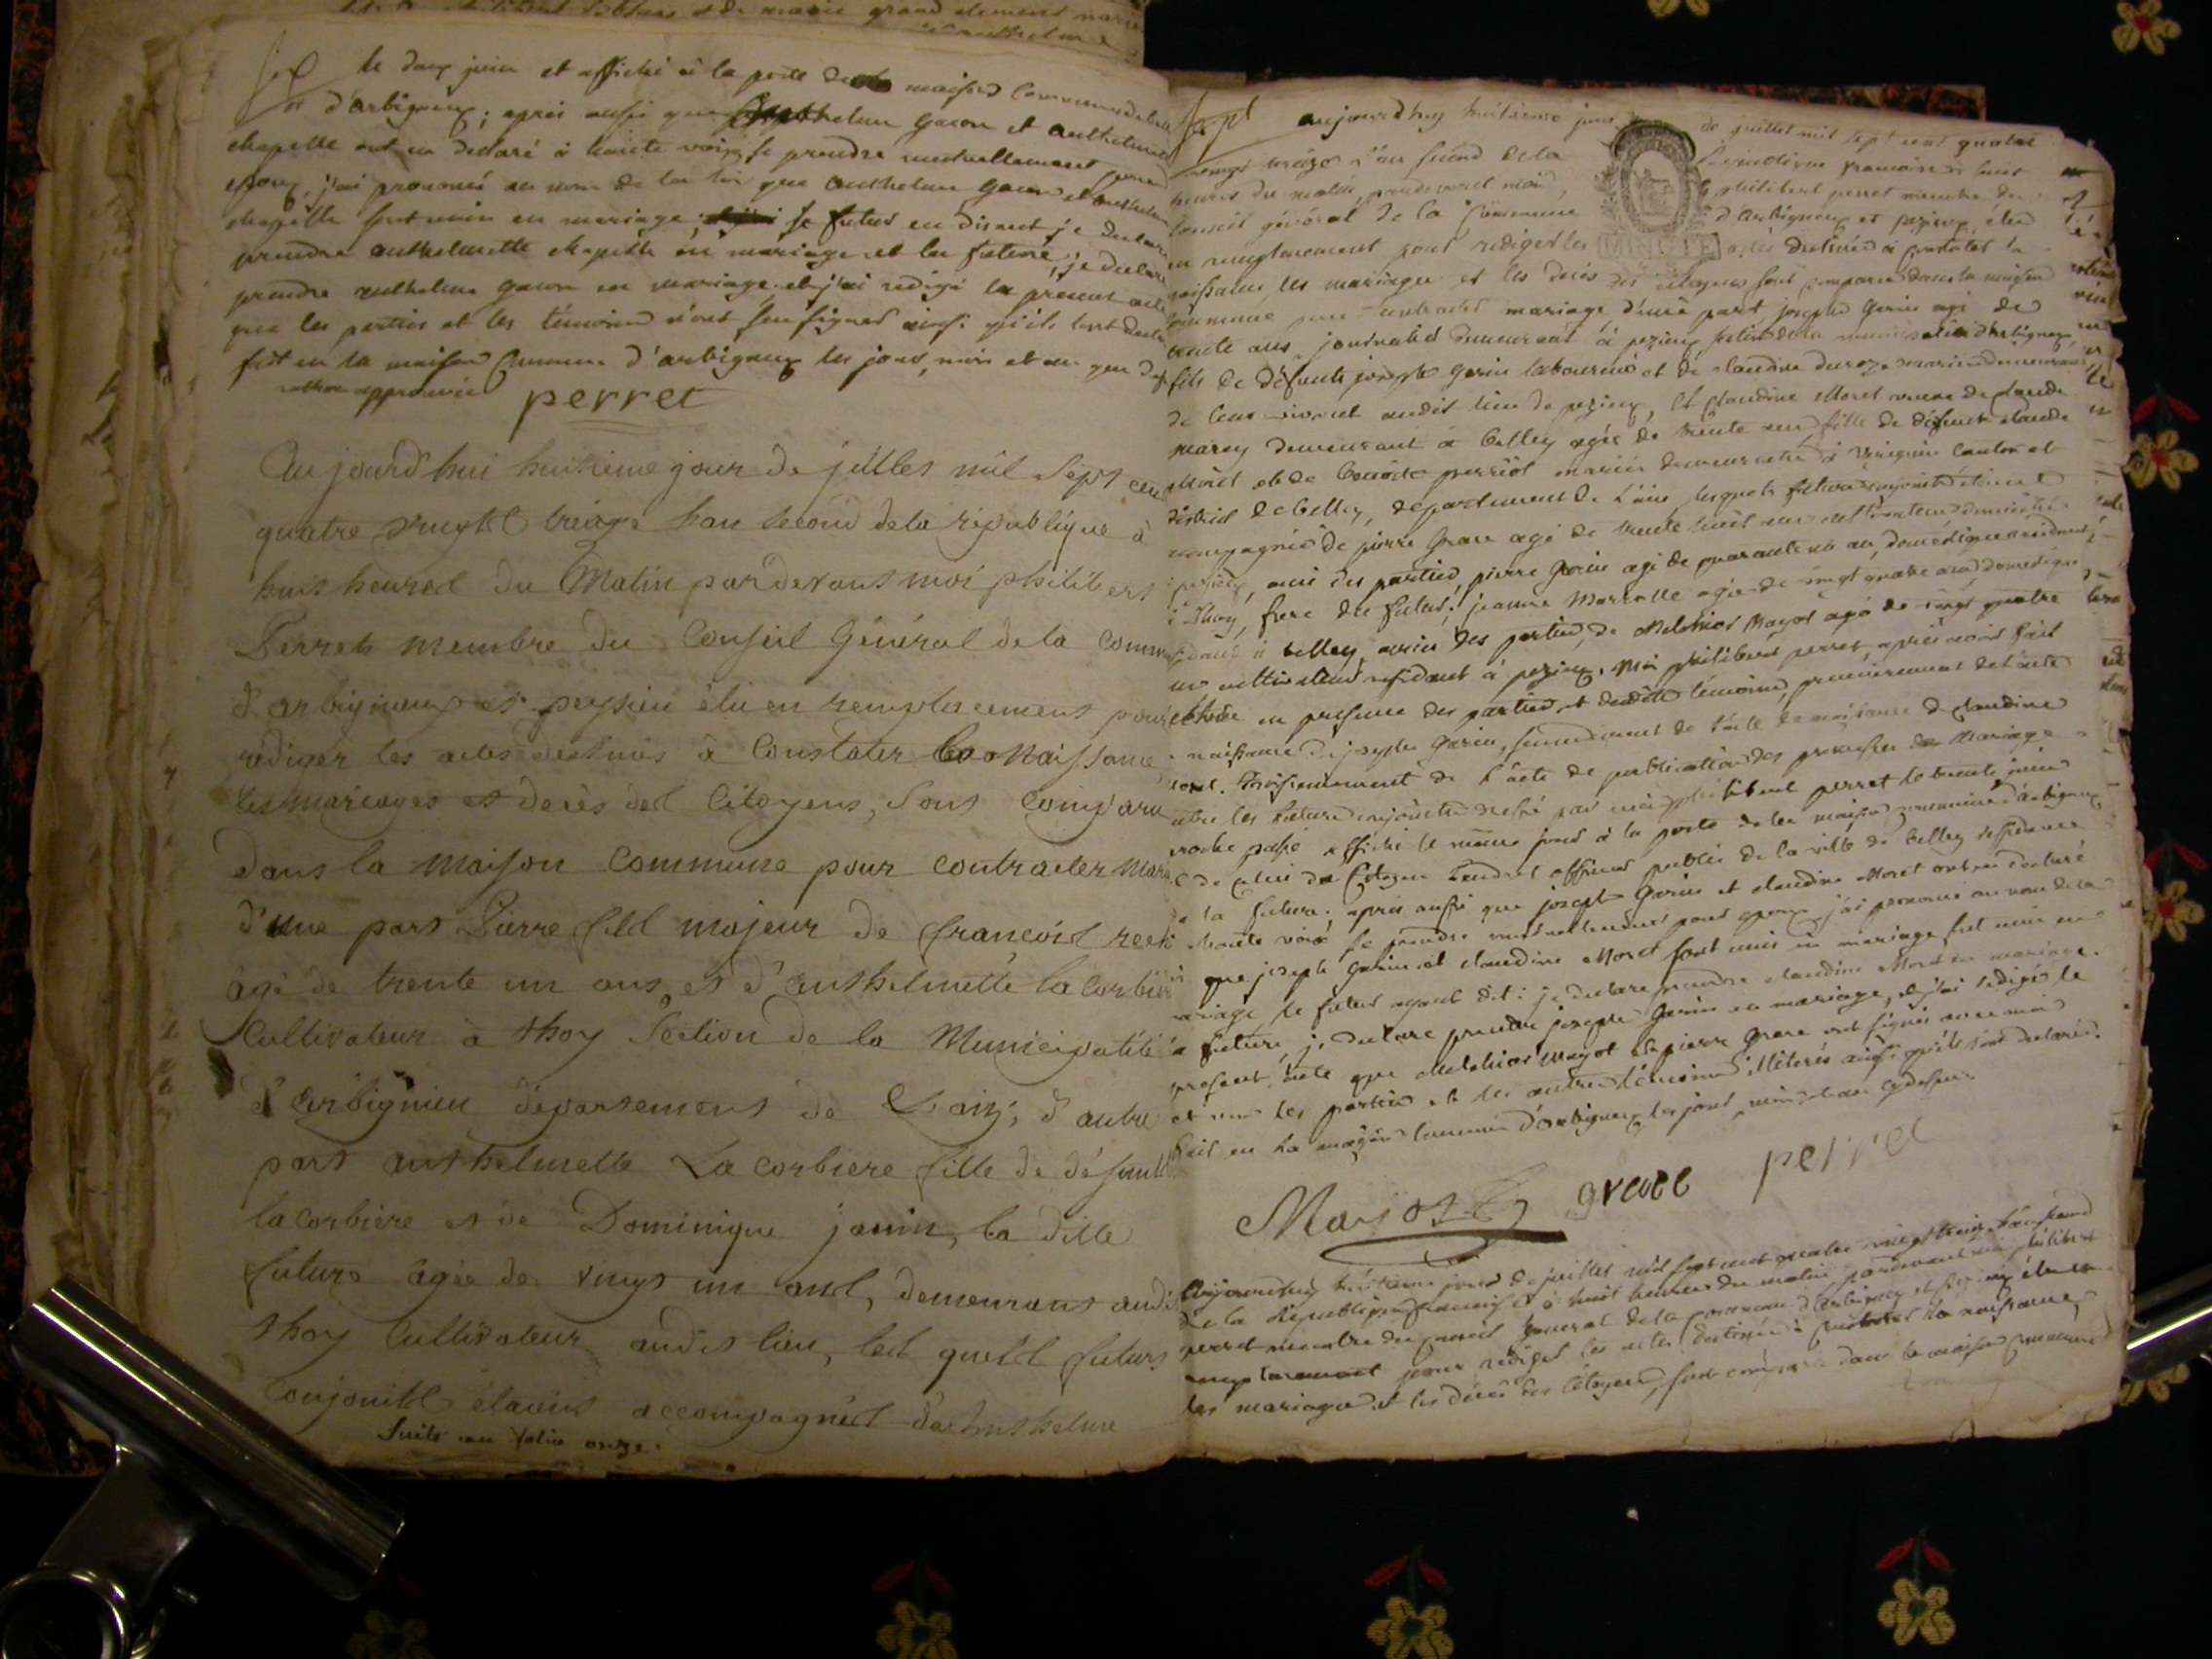 Six le deux juin et affiché à la porte de la maison commune de
et d'arbigneux; après aussi que anthelme gacon et anthelmette
chapelle ont eu declaré à haute voix se prendre mutuellement pour
epoux, j'ai prononcé au nom de la loi que anthelme gacon et anthelmette
chapelle sont unis en mariage; le futur en disant je declare
prendre anthelmette chapelle en mariage et la future, je declare
prendre anthelme gacon en mariage et j'ai redigé le present acte
que les parties et les témoins n'ont sçu signer ainsi qu'ils l'ont declaré
fait en la maison commune d'arbigneux les jour, mois et an que dessus
rature approuvée perret
Aujourd'hui huitieme jour de juillet mil sept cent
quatre vingt treize l'an second de la république à
huit heures du Matin par devant moi philibert
Perret membre du Conseil Général de la commune
d'arbigneux et peyzieu élu en remplacement pour
rédiger les actes destinés à Constater la Naissance
les mariages et décès des Citoyens, sont comparu
dans la Maison Commune pour contracter mariage
d'une part Pierre fils majeur de françois
âgé de trente un ans, et d'anthelmette la Corbière
Cultivateur à thoy Section de la Municipalité
d'arbignieu département de L'ain, d'autre
part anthelmette La corbiere fille de défunt
la corbière et de Dominique janin, la ditte
future âgée de vingt un ans, demeurant audit
thoy Cultivateur audit lieu, les quels futurs
conjoints étoient accompagnés d'anthelme
Suite au folio onze.
Sept aujourdhuy huitieme jour de juillet mil sept cent quatre
vingt treize l'an second de la Republique francaise à huit
heures du matin pardevant moi, philibert perret membre du
conseil général de la Commune d'Arbigneux et pezieux, élu
en remplacement pour rediger les actes destinés à constater la
MINUTE
naissance, les mariages et les décès des citoyens sont comparu dans la maison
commune pour contracter mariage d'une part joseph Gorin agé de
trente ans, journalier demeurant à pezieux section de la municipalité d'arbigneux
fils de défunts joseph Gorin laboureur et de claudine
de leur vivant audit lieu de pezieux, et claudine Moret veuve de claude
marey demeurant à belley agée de trente ans fille de défunt claude
Moret et de benoite perriot mariés demeurants à Virignin canton et
district de belley, departement de L'ain, lesquels futurs conjoints étoient
accompagnés de pierre Grace agé de trente huit ans cultivateur domicilié
à pezieux, ami des parties, pierre Gorin agé de quarante six ans, domestique résident
à Thoy, frere du futur, jeanne Marcelle agée de vingt quatre ans, domestique
à belley amie des parties, de Melchior Mayot agé de vingt quatre
ans cultivateur residant à pezieux. Moi philibert perret, après avoir fait
lecture en presence des parties et desdits témoins, premierement de l'acte
de naissance de joseph Gorin, secondement de l'acte de naissance de claudine
Moret. Troisiemement de l'acte de publication des promesses de Mariage
entre les futurs conjoints dressé par moi philibert perret le trente juin
proche passé affiché le même jour à la porte de la maison commune d'arbigneux
et de celui du Citoyen Tendret officier public de la ville de belley residence
de la future; après aussi que joseph Gorin et claudine Moret ont eu declaré
à haute voix se prendre mutuellement pour epoux, j'ai prononcé au nom de la
que joseph Gorin et claudine Moret sont unis en mariage
mariage le futur ayant dit: je declare prendre claudine Moret en mariage.
la future, je declare prendre joseph Gorin en mariage, et j'ai redigé le
present acte que Melchior Mayot et pierre Grace ont signés avec moi
et non les parties et les autres témoins illiterés ainsi qu'ils l'ont declaré.
fait en la maison commune d'arbigneux les jour, mois et an cydessus.
Mayot grace perret
Aujourdhuy huitieme jour de juillet mil sept cent quatre vingt treize l'an second
de la République francaise à huit heures du matin pardevant moi philibert
perret membre du conseil general de la commune d'arbigneux et pezieux élu en
remplacement pour rediger les actes destinés à constater la naissance,
les mariages et les décès des citoyens, sont comparu dans la maison commune